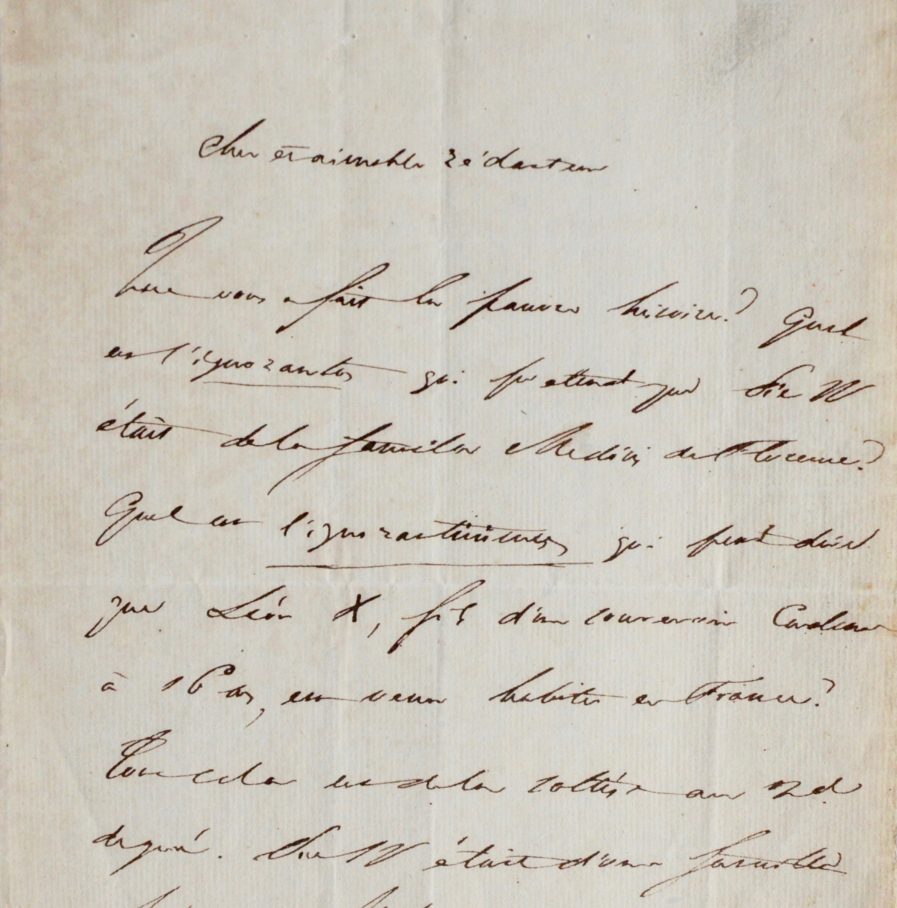 Cher et aimable rédacteur
Que vous a fait la pauvre histoire? Quel
est l'ignorantus qui prétend que Pie IV
était de la famille Médicis de Florence?
Quel est l'ignorantissimus qui peut dire
que Léon X, fils d'un souverain Cardinal
à 16 ans, est venu habiter en France?
Tout cela est de la
degré. Pie IV était d'une famille